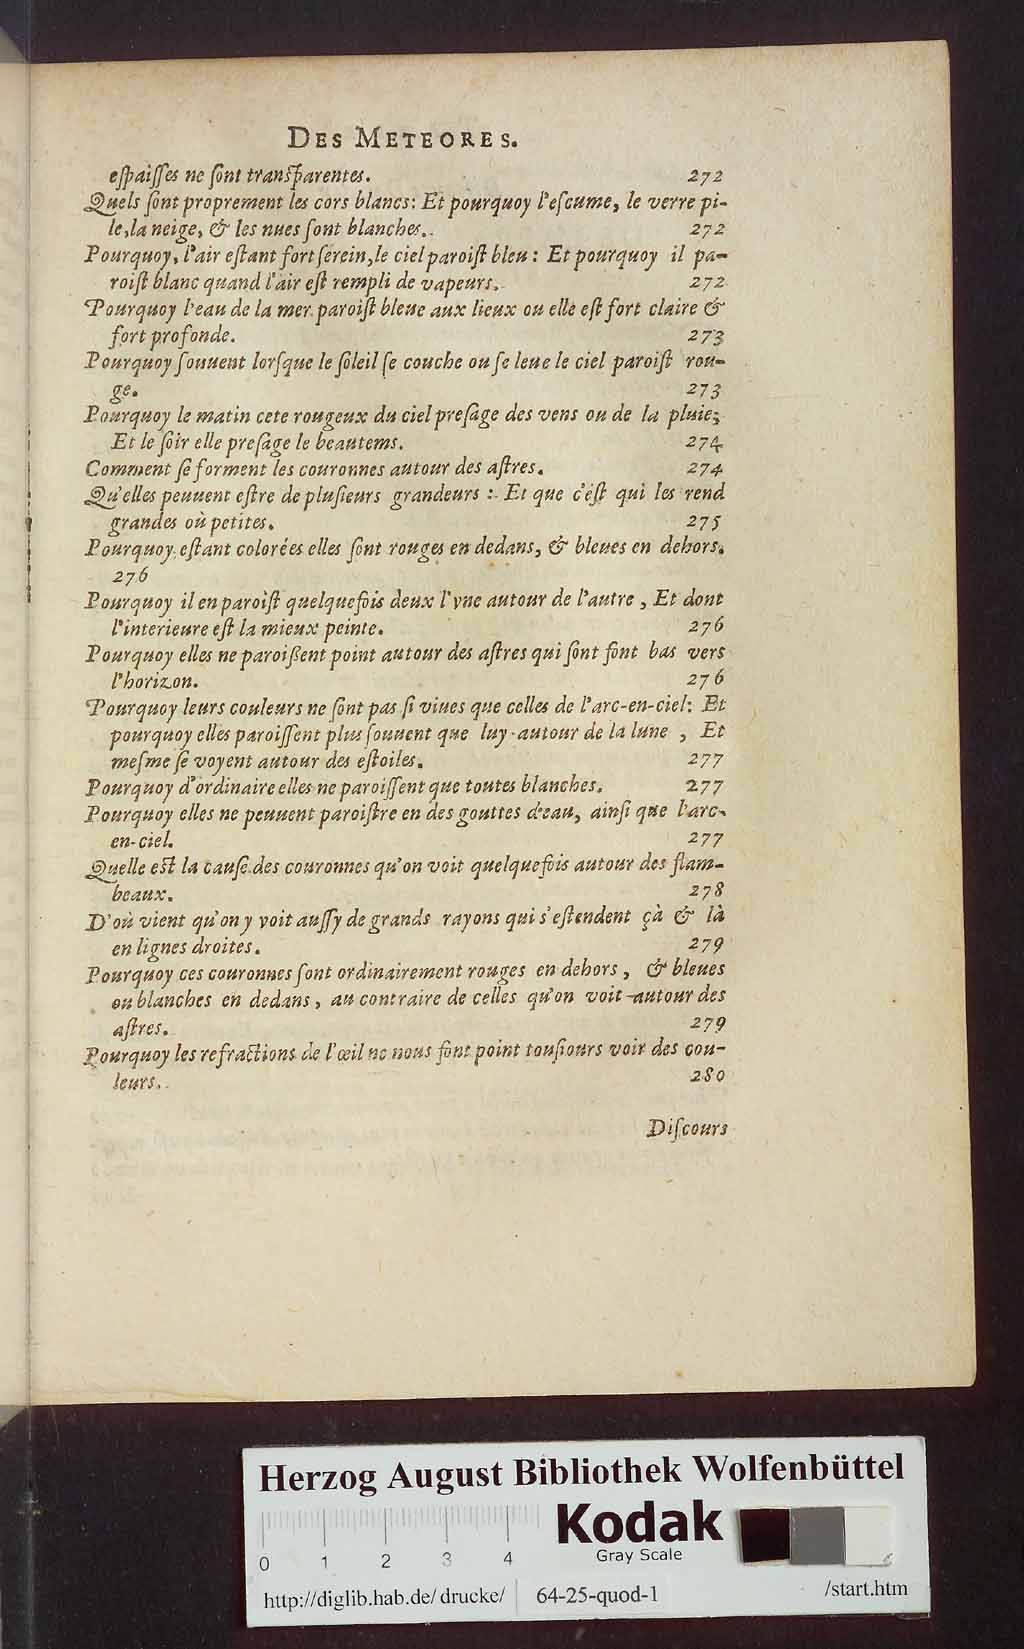 DES METEORES.
eſpaiſſes ne ſont tranſparentes. 272
Quels ſont proprement les cors blancs: Et pourquoy l'eſcume, le verre pi-
lé, la neige, & les nues ſont blanches. 272
Pourquoy, l'air eſtant fort ſerein, le ciel paroiſt bleu: Et pourquoy il pa-
roiſt blanc quand l'air eſt rempli de vapeurs. 272
Pourquoy l'eau de la mer paroiſt bleue aux lieux ou elle eſt fort claire &
fort profonde. 273
Pourquoy ſouuent lorſque le ſoleil ſe couche ou ſe leue le ciel paroiſt rou-
ge. 273
Pourquoy le matin cete rougeux du ciel preſage des vens ou de la pluie;
Et le ſoir elle preſage le beautems. 274
Comment ſe forment les couronnes autour des aſtres. 274
Qu'elles peuuent eſtre de pluſieurs grandeurs: Et que c'eſt qui les rend
grandes où petites. 275
Pourquoy eſtant colorées elles ſont rouges en dedans, & bleues en dehors.
276
Pourquoy il en paroiſt quelquefois deux l'vne autour de l'autre, Et dont
l'interieure eſt la mieux peinte. 276
Pourquoy elles ne paroißent point autour des aſtres qui ſont ſont bas vers
l'horizon. 276
Pourquoy leurs couleurs ne ſont pas ſi viues que celles de l'arc-en-ciel: Et
pourquoy elles paroiſſent plus ſouuent que luy autour de la lune, Et
meſme ſe voyent autour des eſtoiles. 277
Pourquoy d'ordinaire elles ne paroiſſent que toutes blanches. 277
Pourquoy elles ne peuuent paroiſtre en des gouttes d'eau, ainſi que l'arc-
en-ciel. 277
Quelle eſt la cauſe des couronnes qu'on voit quelquefois autour des flam-
beaux. 278
D'où vient qu'on y voit auſſy de grands rayons qui s'eſtendent çà & là
en lignes droites. 279
Pourquoy ces couronnes ſont ordinairement rouges en dehors, & bleues
ou blanches en dedans, au contraire de celles qu'on voit autour des
aſtres. 279
Pourquoy les refractions de l'œil ne nous font point touſiours voir des cou-
leurs. 280
Diſcours
Herzog August Bibliothek Wolfenbüttel
Kodak
Gray Scale
0 1 2 3 4
http://diglib.hab.de/drucke/ 64-25-quod-1 /start.htm